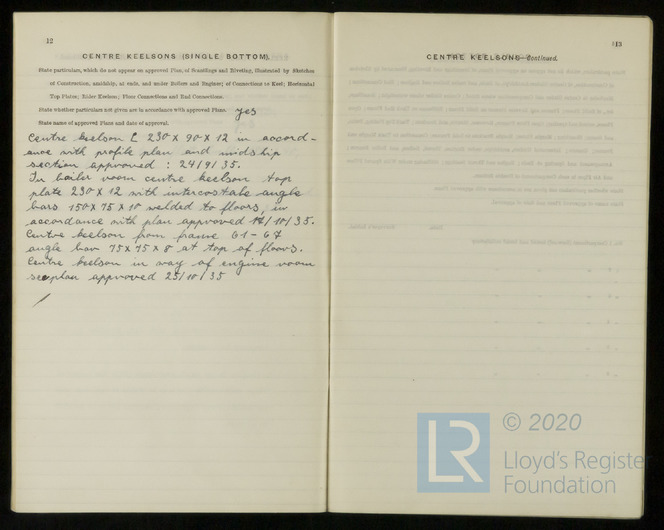 12
CENTRE KEELSONS (SINGLE BOTTOM).
State particulars, which do not appear on approved Plan, of Scantlings and Riveting, illustrated by Sketches
of Construction, amidship, at ends, and under Boilers and Engines; of Connections to Keel; Horizontal
Top Plates; Rider Keelson; Floor Connections and End Connections.
State whether particulars not given are in accordance with approved Plans. yes
State name of approved Plans and date of approval.
Centre keelson [ 230 x 90 x 12 in accord-
ance with profile plan and midship
section approved : 24/9/35.
In boiler room centre keelson top
plate 230 x 12 with intercostale angle
bars 150 x 75 x 10 welded to floors, in
accordance with plan approved /10/35.
Centre keelson from frame 61 - 67
angle bar 75 x 75 x 8 at top of floors.
Centre keelson in way of engine room
see plan approved 25/10/35
113
CENTRE KEELSONS—Continued.
LR
© 2020
Lloyd's Register
Foundation